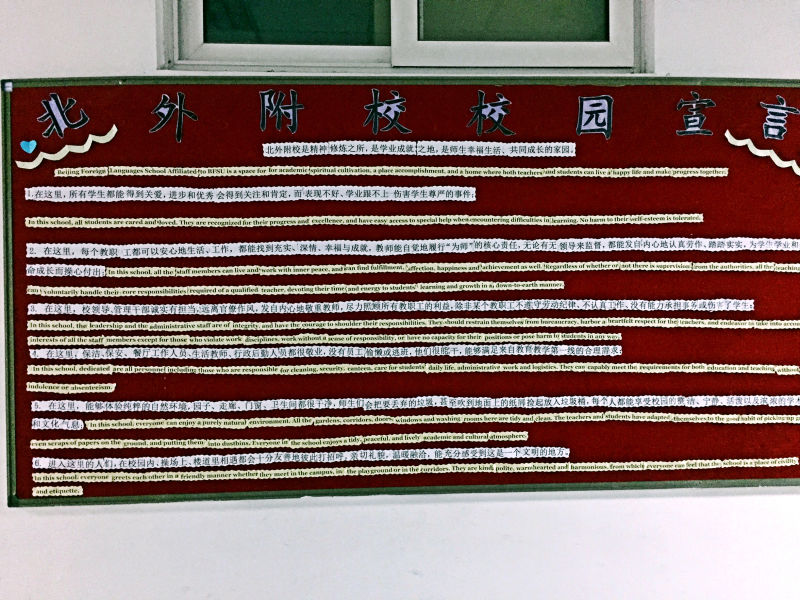 北外附校校园宣言
北外附校是精神修炼之所,是学业成就之地,是师生幸福生活、共同成长的家园。
Beijing Foreign Languages School Affiliated to BFSU is a space for for academic spiritual cultivation, a place accomplishment, and a home where both teachers and students can live a happy life and make progress together.
1.在这里,所有学生都能得到关爱,进步和优秀会得到关注和肯定,而表现不好、学业跟不上 伤害学生尊严的事件;
In this school, all students are cared and loved. They are recognized for their progress and excellence, and have easy access to special help when encountering difficulties in learning. No harm to their self-esteem is tolerated.
2. 在这里,每个教职工都可以安心地生活、工作,都能找到充实、深情、幸福与成就,教师能自觉地履行“为师”的核心责任,无论有无领导来监督,都能发自内心地认真劳作、踏踏实实,为学生学业和
命成长而操心付出; In this school, all the staff members can live and work with inner peace, and can find fulfillment, affection, happiness and achievement as well. Regardless of whether or not there is supervision from the authorities, all the teaching
can voluntarily handle their core responsibilities required of a qualified teacher, devoting their time and energy to students' learning and growth in a down-to-earth manner.
3. 在这里,校领导、管理干部诚实有担当,远离官僚作风,发自内心地敬重教师,尽力照顾所有教职工的利益,除非某个教职工不遵守劳动纪律、不认真工作、没有能力承担事务或伤害了学生;
In this school, the leadership and the administrative staff are of integrity, and have the courage to shoulder their responsibilities. They should restrain themselves from bureaucracy, harbor a heartfelt respect for the teachers, and endeavor to take into account
interests of all the staff members except for those who violate work disciplines, work without a sense of responsibility, or have no capacity for their positions or pose harm to students in any way.
4. 在这里,保洁、保安、餐厅工作人员、生活教师、行政后勤人员都很敬业,没有员工偷懒或逃班,他们很能干,能够满足来自教育教学第一线的合理需求;
In this school, dedicated are all personnel including those who are responsible for cleaning, security, canteen, care for students' daily life, administrative work and logistics. They can capably meet the requirements for both education and teaching without
indolence or absenteeism.
5. 在这里,能够体验纯粹的自然环境,园子、走廊、门窗、卫生间都很干净,师生们会把要丢弃的垃圾,甚至吹到地面上的纸屑捡起放入垃圾桶,每个人都能享受校园的整洁、宁静、活泼以及浓浓的学
和文化气息; In this school, everyone can enjoy a purely natural environment. All the gardens, corridors, doors, windows and washing rooms here are tidy and clean. The teachers and students have adapted themselves to the good habit of picking up
even scraps of papers on the ground, and putting them into dustbins. Everyone in the school enjoys a tidy, peaceful, and lively academic and cultural atmosphere.
6. 进入这里的人们,在校园内、操场上、楼道里相遇都会十分友善地彼此打招呼,亲切礼貌,温暖融洽,能充分感受到这是一个文明的地方。
In this school, everyone greets each other in a friendly manner whether they meet in the campus, in the playground or in the corridors. They are kind, polite, warmhearted and harmonious, from which everyone can feel that the school is a place of civility
and etiquette.